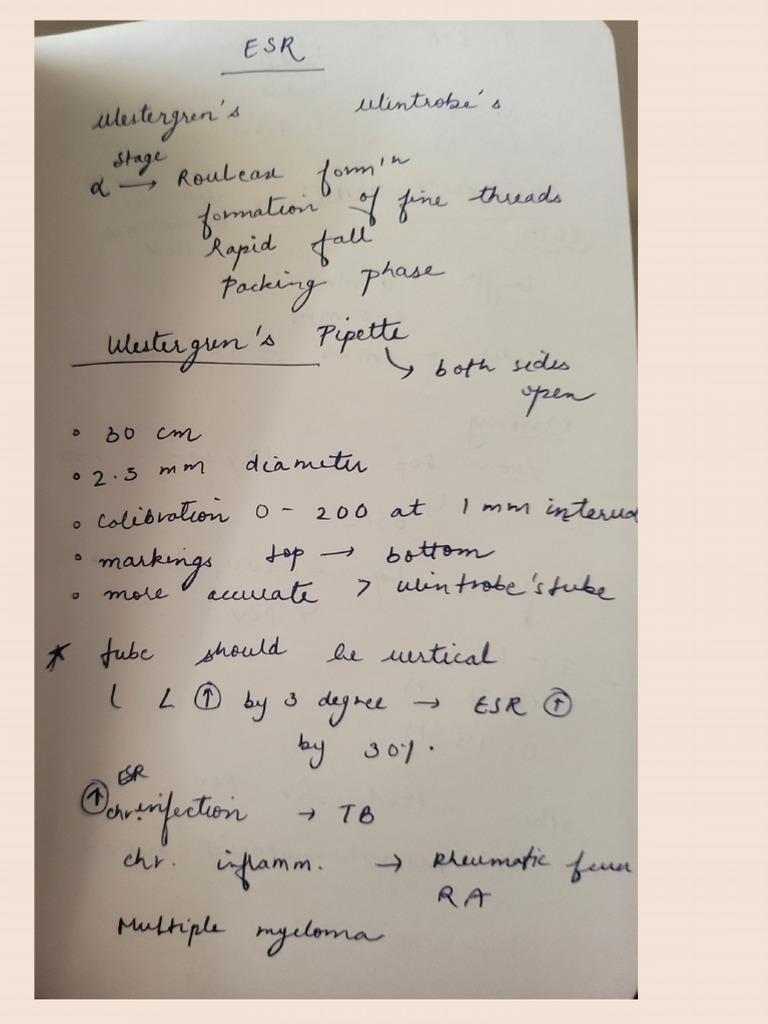 ESR
Westergren's Wintrobe's
stage
α → Rouleau form'n
formation of fine threads
Rapid fall
Packing phase
Westergren's Pipette
↳ both sides
open
• 30 cm
• 2.5 mm diameter
• calibration 0 - 200 at 1 mm interval
• markings top → bottom
• more accurate > Wintrobe's tube
* tube should be vertical
( ∠ ↑ by 3 degree → ESR ↑
by 30%.
ESR
↑ chr. infection → TB
chr. inflamm. → Rheumatic fever
RA
Multiple myeloma